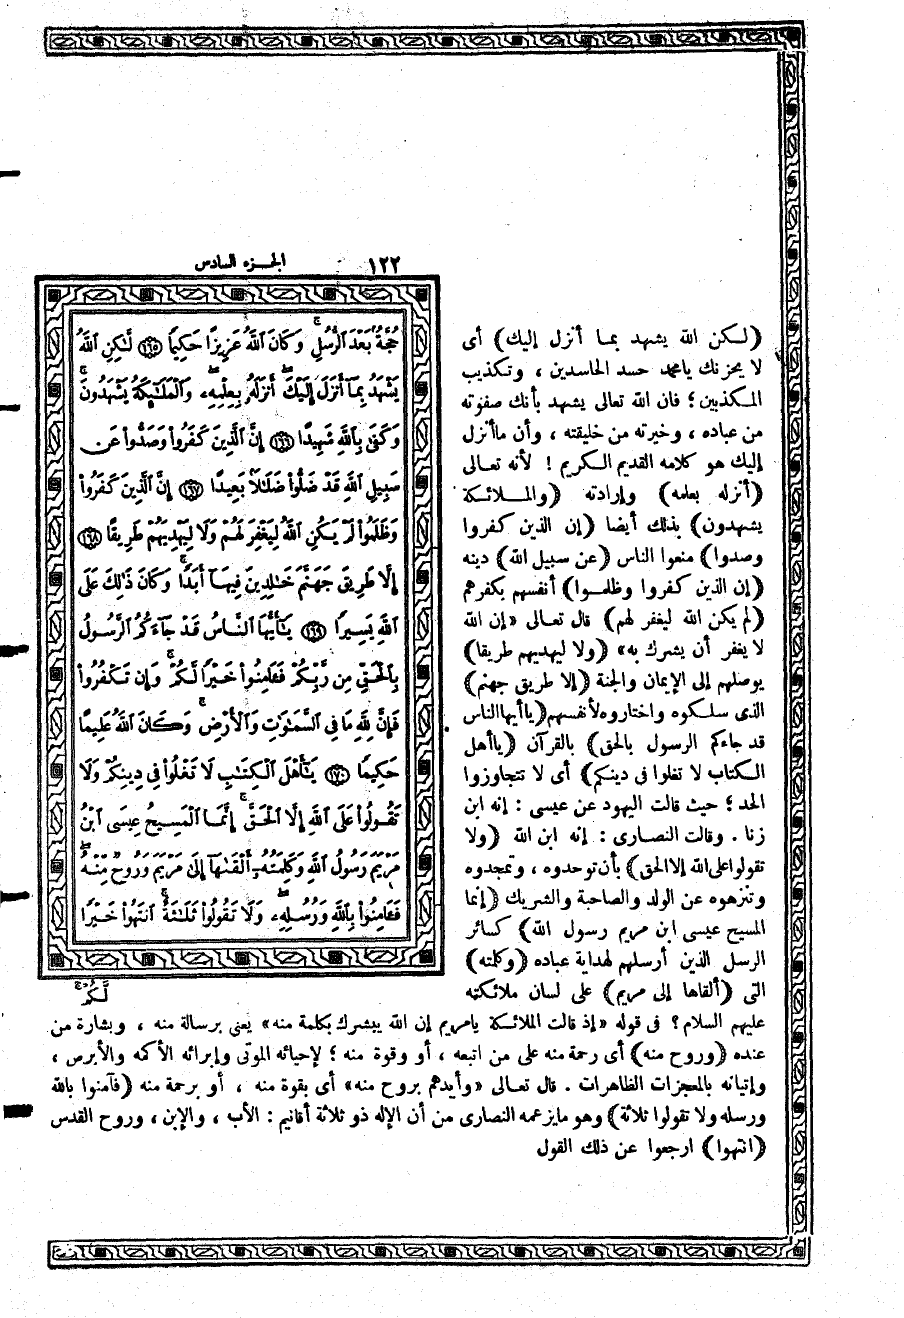 ١٢٢ الجزء السادس
حُجَّةٌۢ بَعْدَ ٱلرُّسُلِ ۚ وَكَانَ ٱللَّهُ عَزِيزًا حَكِيمًا ١٦٥ لَّـٰكِنِ ٱللَّهُ
يَشْهَدُ بِمَآ أَنزَلَ إِلَيْكَ ۖ أَنزَلَهُۥ بِعِلْمِهِۦ ۖ وَٱلْمَلَـٰٓئِكَةُ يَشْهَدُونَ ۚ
وَكَفَىٰ بِٱللَّهِ شَهِيدًا ١٦٦ إِنَّ ٱلَّذِينَ كَفَرُوا۟ وَصَدُّوا۟ عَن
سَبِيلِ ٱللَّهِ قَدْ ضَلُّوا۟ ضَلَـٰلًۢا بَعِيدًا ١٦٧ إِنَّ ٱلَّذِينَ كَفَرُوا۟
وَظَلَمُوا۟ لَمْ يَكُنِ ٱللَّهُ لِيَغْفِرَ لَهُمْ وَلَا لِيَهْدِيَهُمْ طَرِيقًا ١٦٨
إِلَّا طَرِيقَ جَهَنَّمَ خَـٰلِدِينَ فِيهَآ أَبَدًا ۚ وَكَانَ ذَٰلِكَ عَلَى
ٱللَّهِ يَسِيرًا ١٦٩ يَـٰٓأَيُّهَا ٱلنَّاسُ قَدْ جَآءَكُمُ ٱلرَّسُولُ
بِٱلْحَقِّ مِن رَّبِّكُمْ فَـَٔامِنُوا۟ خَيْرًا لَّكُمْ ۚ وَإِن تَكْفُرُوا۟
فَإِنَّ لِلَّهِ مَا فِى ٱلسَّمَـٰوَٰتِ وَٱلْأَرْضِ ۚ وَكَانَ ٱللَّهُ عَلِيمًا
حَكِيمًا ١٧٠ يَـٰٓأَهْلَ ٱلْكِتَـٰبِ لَا تَغْلُوا۟ فِى دِينِكُمْ وَلَا
تَقُولُوا۟ عَلَى ٱللَّهِ إِلَّا ٱلْحَقَّ ۚ إِنَّمَا ٱلْمَسِيحُ عِيسَى ٱبْنُ
مَرْيَمَ رَسُولُ ٱللَّهِ وَكَلِمَتُهُۥٓ أَلْقَىٰهَآ إِلَىٰ مَرْيَمَ وَرُوحٌ مِّنْهُ ۖ
فَـَٔامِنُوا۟ بِٱللَّهِ وَرُسُلِهِۦ ۖ وَلَا تَقُولُوا۟ ثَلَـٰثَةٌ ۚ ٱنتَهُوا۟ خَيْرًا
لَّكُمْ ۚ
(لكن الله يشهد بما أنزل إليك) أى
لا يحزنك يامحمد حسد الحاسدين ، وتكذيب
المكذبين ؛ فان الله تعالى يشهد بأنك صفوته
من عباده ، وخيرته من خليقته ، وأن ماأنزل
إليك هو كلامه القديم الكريم ! لأنه تعالى
(أنزله بعلمه) وإرادته (والملائكة
يشهدون) بذلك أيضا (إن الذين كفروا
وصدوا) منعوا الناس (عن سبيل الله) دينه
(إن الذين كفروا وظلموا) أنفسهم بكفرهم
(لم يكن الله ليغفر لهم) قال تعالى «إن الله
لا يغفر أن يشرك به» (ولا ليهديهم طريقا)
يوصلهم إلى الإيمان والجنة (إلا طريق جهنم)
الذى سلكوه واختاروه لأنفسهم (ياأيها الناس
قد جاءكم الرسول بالحق) بالقرآن (ياأهل
الكتاب لا تغلوا فى دينكم) أى لا تتجاوزوا
الحد ؛ حيث قالت اليهود عن عيسى : إنه ابن
زنا . وقالت النصارى : إنه ابن الله (ولا
تقولوا على الله إلا الحق) بأن توحدوه ، وتمجدوه
وتنزهوه عن الولد والصاحبة والشريك (إنما
المسيح عيسى ابن مريم رسول الله) كسائر
الرسل الذين أرسلهم لهداية عباده (وكلمته)
التى (ألقاها إلى مريم) على لسان ملائكته
عليهم السلام ؟ فى قوله «إذ قالت الملائكة يامريم إن الله يبشرك بكلمة منه» يعنى برسالة منه ، وبشارة من
عنده (وروح منه) أى رحمة منه على من اتبعه ، أو وقوة منه ؛ لإحيائه الموتى وإبرائه الأكمه والأبرص ،
وإتيانه بالمعجزات الظاهرات . قال تعالى «وأيدهم بروح منه» أى بقوة منه ، أو برحمة منه (فآمنوا بالله
ورسله ولا تقولوا ثلاثة) وهو مايزعمه النصارى من أن الإله ذو ثلاثة أقانيم : الأب ، والإبن ، وروح القدس
(انتهوا) ارجعوا عن ذلك القول